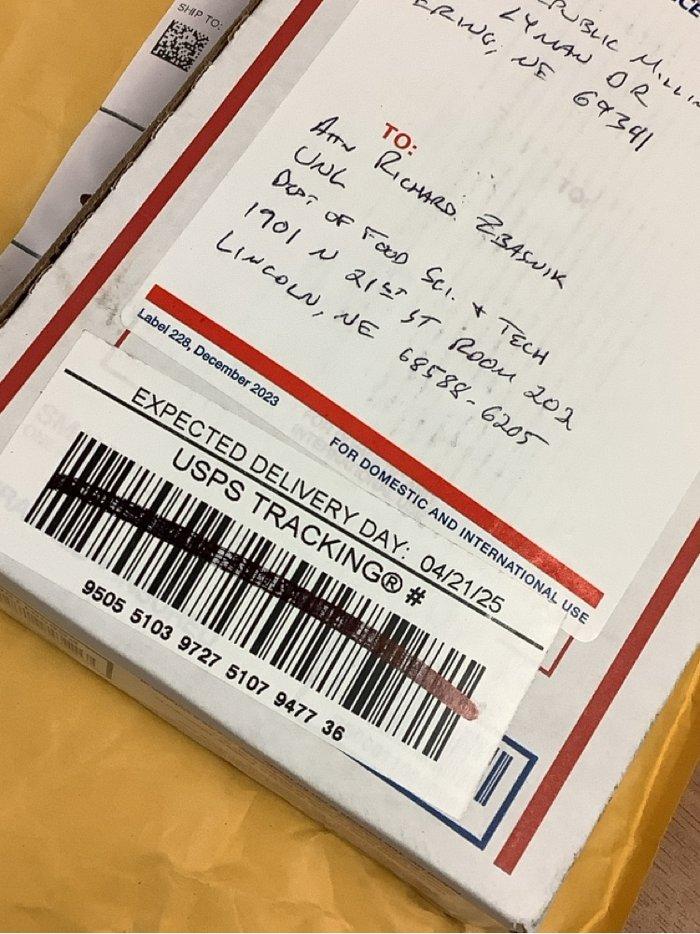 SHIP TO:
PUBLIC MILLIN
LYMAN DR
ERING, NE 69341
TO:
ATTN RICHARD ZBASNIK
UNL
DEPT OF FOOD SCI. & TECH
1901 N 21ST ST ROOM 202
LINCOLN, NE 68588-6205
Label 228, December 2023
FOR DOMESTIC AND INTERNATIONAL USE
EXPECTED DELIVERY DAY: 04/21/25
USPS TRACKING® #
9505 5103 9727 5107 9477 36